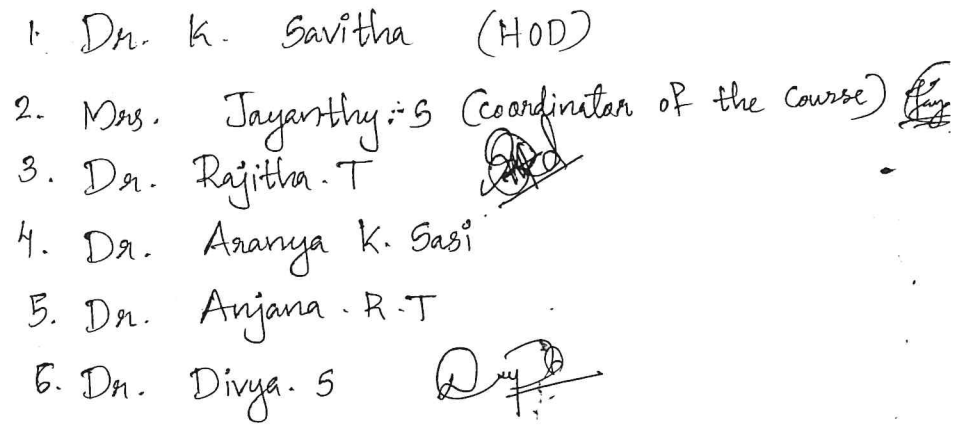 1. Dr. K. Savitha (HOD)
2. Mrs. Jayanthy.S (coordinator of the course)
3. Dr. Rajitha.T
4. Dr. Aranya K. Sasi
5. Dr. Anjana.R.T
6. Dr. Divya.S